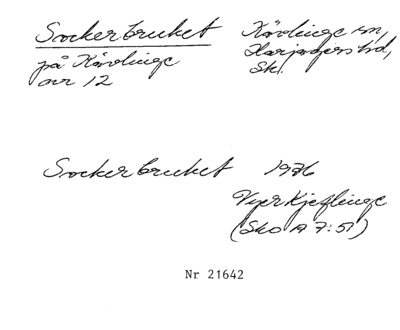 Sockerbruket
på Kävlinge
nr 12
Kävlinge sn,
Harjagers hd,
Sk.
Sockerbruket 1936
Vyer Kjeflinge
(Sko A 7:51)
Nr 21642